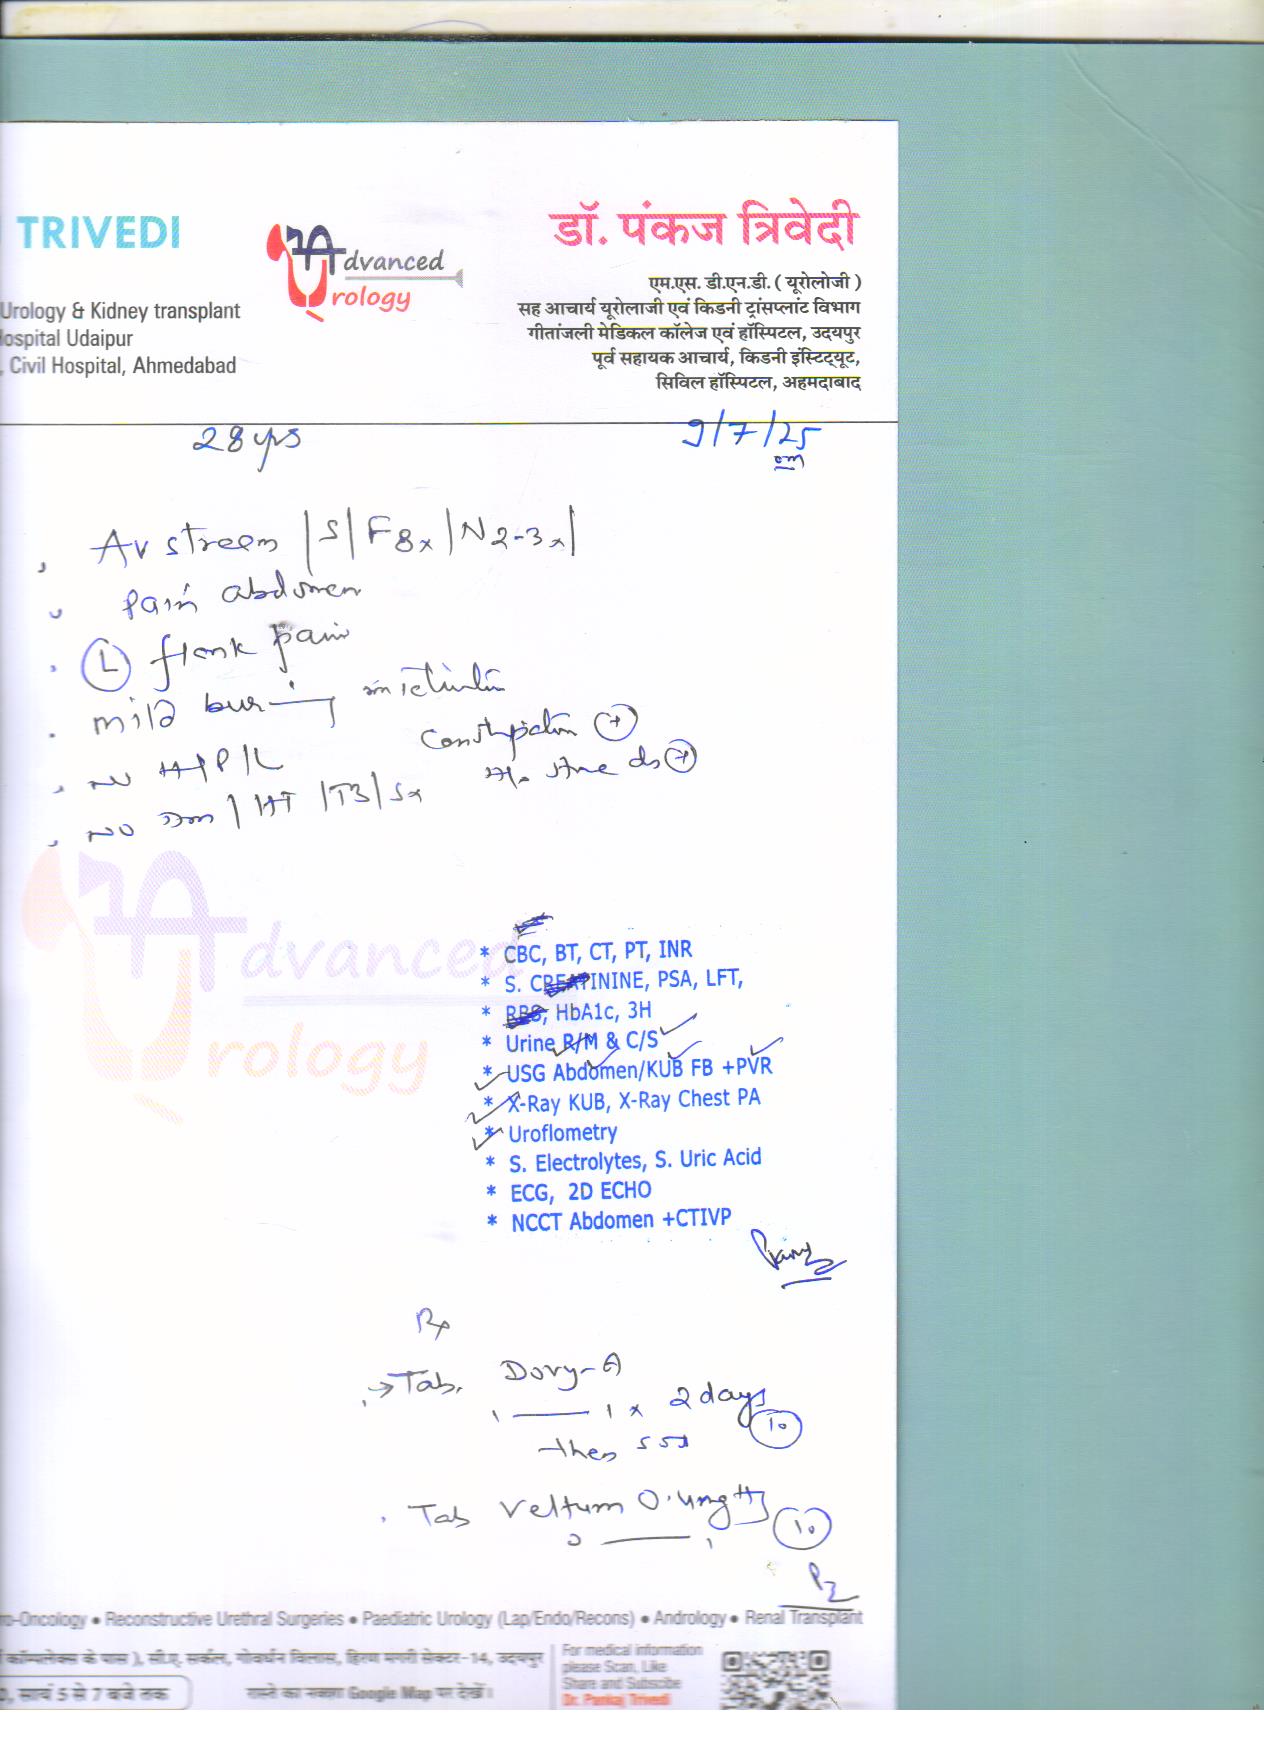 TRIVEDI
Advanced
Urology
डॉ. पंकज त्रिवेदी
Urology & Kidney transplant
ospital Udaipur
, Civil Hospital, Ahmedabad
एम.एस. डी.एन.डी. ( यूरोलोजी )
सह आचार्य यूरोलाजी एवं किडनी ट्रांसप्लांट विभाग
गीतांजली मेडिकल कॉलेज एवं हॉस्पिटल, उदयपुर
पूर्व सहायक आचार्य, किडनी इंस्टिट्यूट,
सिविल हॉस्पिटल, अहमदाबाद
28 yrs
9/7/25
Av stream |S| F8x |N2-3x|
Pain abdomen
(L) flank pain
mild burning
Constipation (+)
no H/P/L
NO Dm / HT / TB / Sx
Advanced
Urology
* CBC, BT, CT, PT, INR
* S. CREATININE, PSA, LFT,
* RBS, HbA1c, 3H
* Urine R/M & C/S
* USG Abdomen/KUB FB +PVR
* X-Ray KUB, X-Ray Chest PA
* Uroflometry
* S. Electrolytes, S. Uric Acid
* ECG, 2D ECHO
* NCCT Abdomen +CTIVP
Rx
→ Tab. Doxy-A
1 — 1 x 2 days (10)
then
Tab Veltum 0.4mg (10)
0 — 1
ro-Oncology • Reconstructive Urethral Surgeries • Paediatric Urology (Lap/Endo/Recons) • Andrology • Renal Transplant
कॉम्पलेक्स के पास ), सी.ए. सर्कल, गोवर्धन विलास, हिरण मगरी सेक्टर-14, उदयपुर
, सायं 5 से 7 बजे तक
रास्ते का नक्शा Google Map पर देखें।
For medical information
please Scan, Like
Share and Subscibe
Dr. Pankaj Trivedi